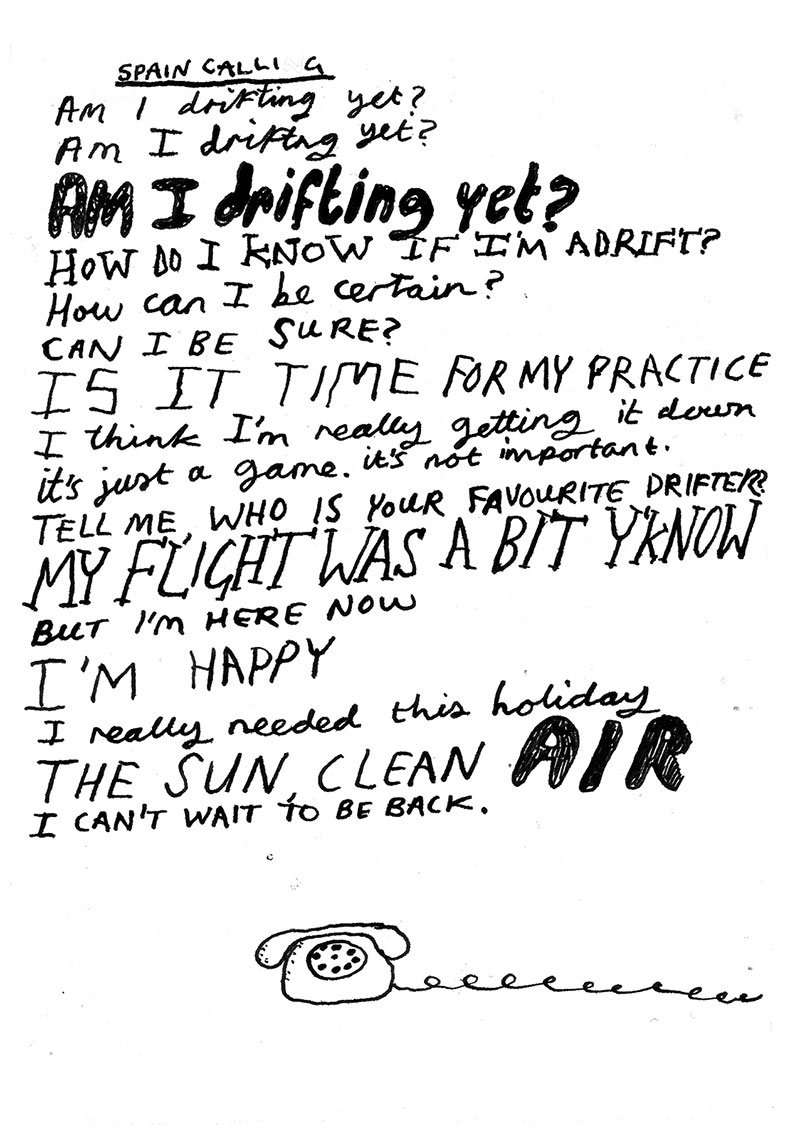 SPAIN CALLI G
Am I drifting yet?
Am I driftng yet?
AM I drifting yet?
HOW DO I KNOW IF I'M ADRIFT?
How can I be certain?
CAN I BE SURE?
IS IT TIME FOR MY PRACTICE
I think I'm really getting it down
it's just a game. it's not important.
TELL ME, WHO IS YOUR FAVOURITE DRIFTER??
MY FLIGHT WAS A BIT Y'KNOW
BUT I'M HERE NOW
I'M HAPPY
I really needed this holiday
THE SUN, CLEAN AIR
I CAN'T WAIT TO BE BACK.